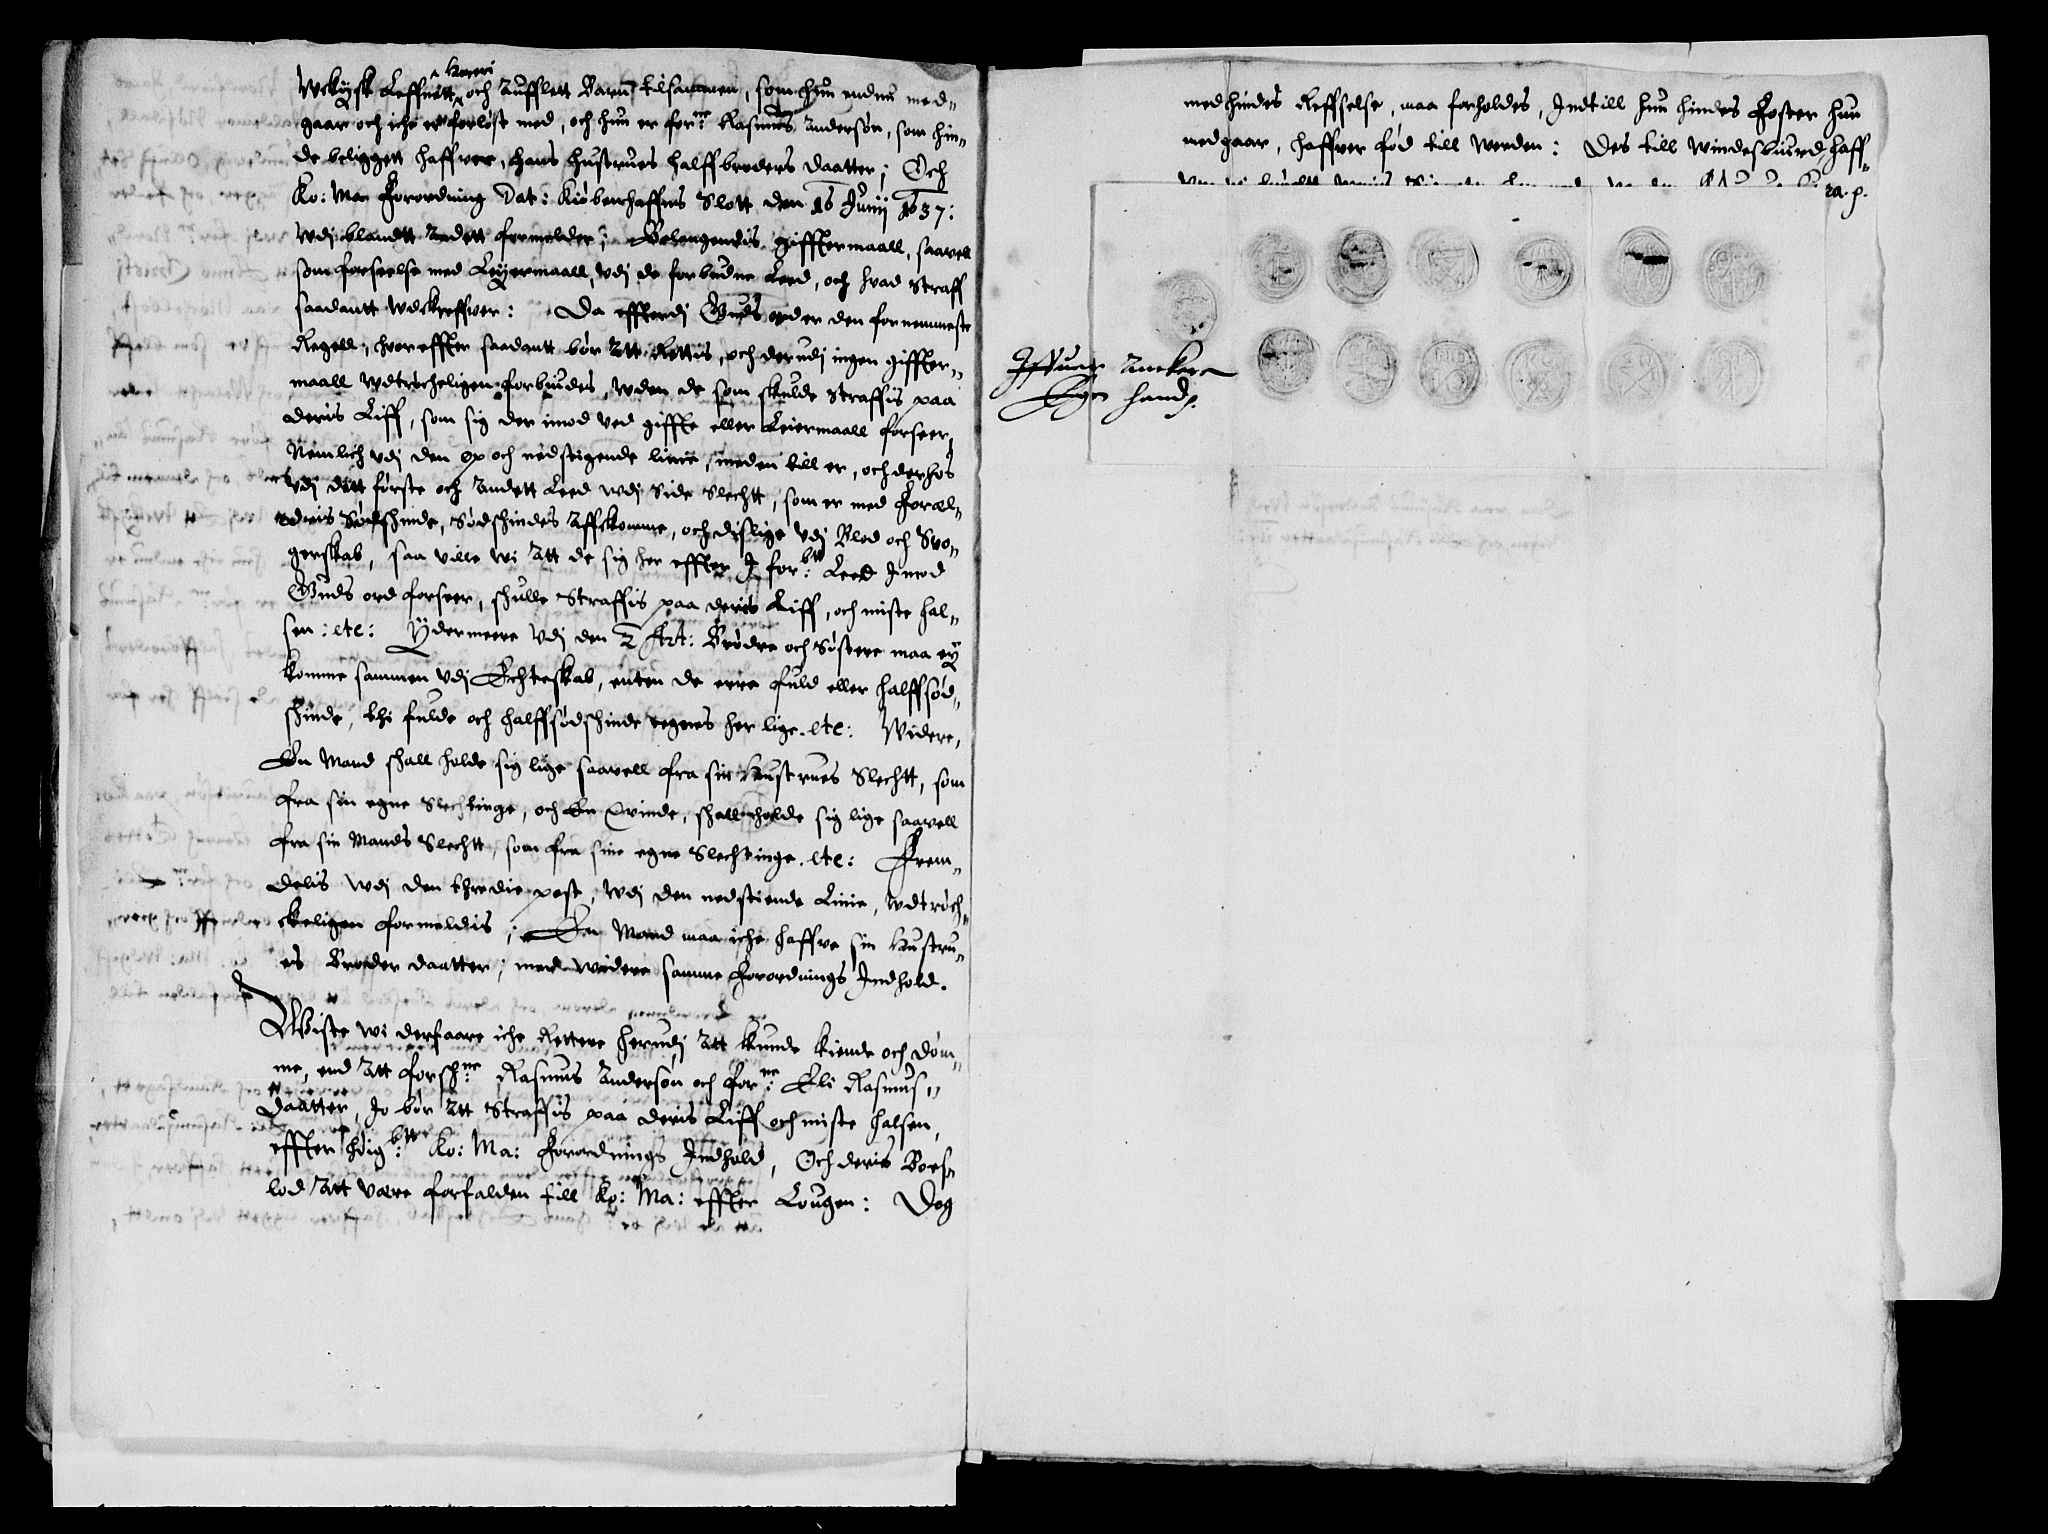 Wckÿsk Leffnitt horeri och Aufflett Barn tilsammen, som hun endnu med„
gaar och iche er forløst med, och hun er forne: Rasmus Andersøn, som hin„
de beliggett haffver, hans hustrues halffbroders daatter; Och
Ko: Ma: Forordning Dat: Kiøbenhaffns Slott den 16 Junij 1637:
Vdj blandt Andett formelder; Belangendis gifftermaall, saavell
som forseelse med Leÿermaall, vdj de forbudne Leed, och hvad straff
saadantt vdkreffver: Da efftterdj Guds ord er den fornemmeste
Regell, hvor effter saadant bør Att Rettis, och derudi ingen giffter„
maall vdtrycheligen forbiudes, vden de som skulde straffis paa
deris Liff, som sig der imod ved giffte eller Leiermaall forseer,
Nemlich vdj den op och nedstigende linie, meden till er, och derhos
vdj ditt første och Andett Leed wdj Side Slechtt, som er med Foræl„
dris Sødshinde, Sødshindes Affkomme, och dislige vdj Blod och Svo„
gerskab, saa ville wi Att de sig her effter J forbte: Leed Jmod
Guds ord forseer, shulle Straffis paa deris Liff, och miste hal„
sen: etc: Ydermeere vdj den 2 Art: Brødre och Søstere maa eÿ
komme sammen vdj Echteskab, enten de erre fuld eller halffsød„
shinde, thi fulde och halffsødshinde regnes her lige. etc: Widere,
En Mand shall holde sig lige saavell fra sin Hustrues Slechtt, som
fra sin egne Slechtinge, och En Qvinde, shall holde sig lige saavell
fra sin Mands Slechtt, som fra sine egne Slechtinge. etc: Frem„
delis wdj den thredie post, wdj den nedstiende Linie, vdtrøch„
keligen formeldis; En Mand maa iche haffve sin Hustru„
es Broder daatter; med widere samme Forordnings Jndhold.
Wiste wi derfaare iche Rettere herudj Att kunde kiende och døm„
me, end Att forschne: Rasmus Andersøn och forne: Eli Rasmus„
daatter, Jo bør Att Straffis paa deris Liff och miste halsen,
effter høigbte: Ko: Ma: Forordnings Jndhold, Och deris Boes„
lod Att være forfalden till Ko: Ma: effter Lougen: Dog
med hindes Reffselse, maa forholdes, Jndtill hun hindes Foster hun
medgaar, haffver fød till werden: Des till windesbiurd haff„
ra. p.
Jffuer Anker
Egen hand.